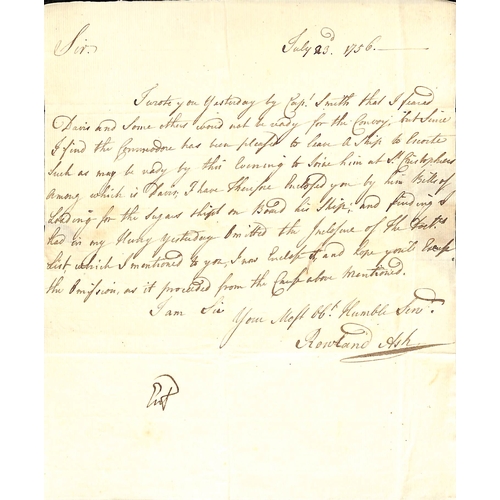 Sir. July 23. 1756.
I wrote you Yesterday by Capt. Smith that I feared
Davis and Some others would not be ready for the Convoy; but Since
I find the Commodore has been pleas'd to leave a Ship to Escorte
Such as may be ready by this Evening to Joine him at St. Christophers
Among which is Davis, I have therefore Enclosed you by him Bills of
Loading for the Sugars Shipt on Board his Ship; and finding I
had in my Hurry Yesterday Omitted the Inclosure of the
List which I mentioned to you, I now Enclose it, and hope you'll Excuse
the Omission, as it proceeded from the Cause above Mentioned.
I am Sir
Your Most Obt. Humble Servt.
Rowland Ash